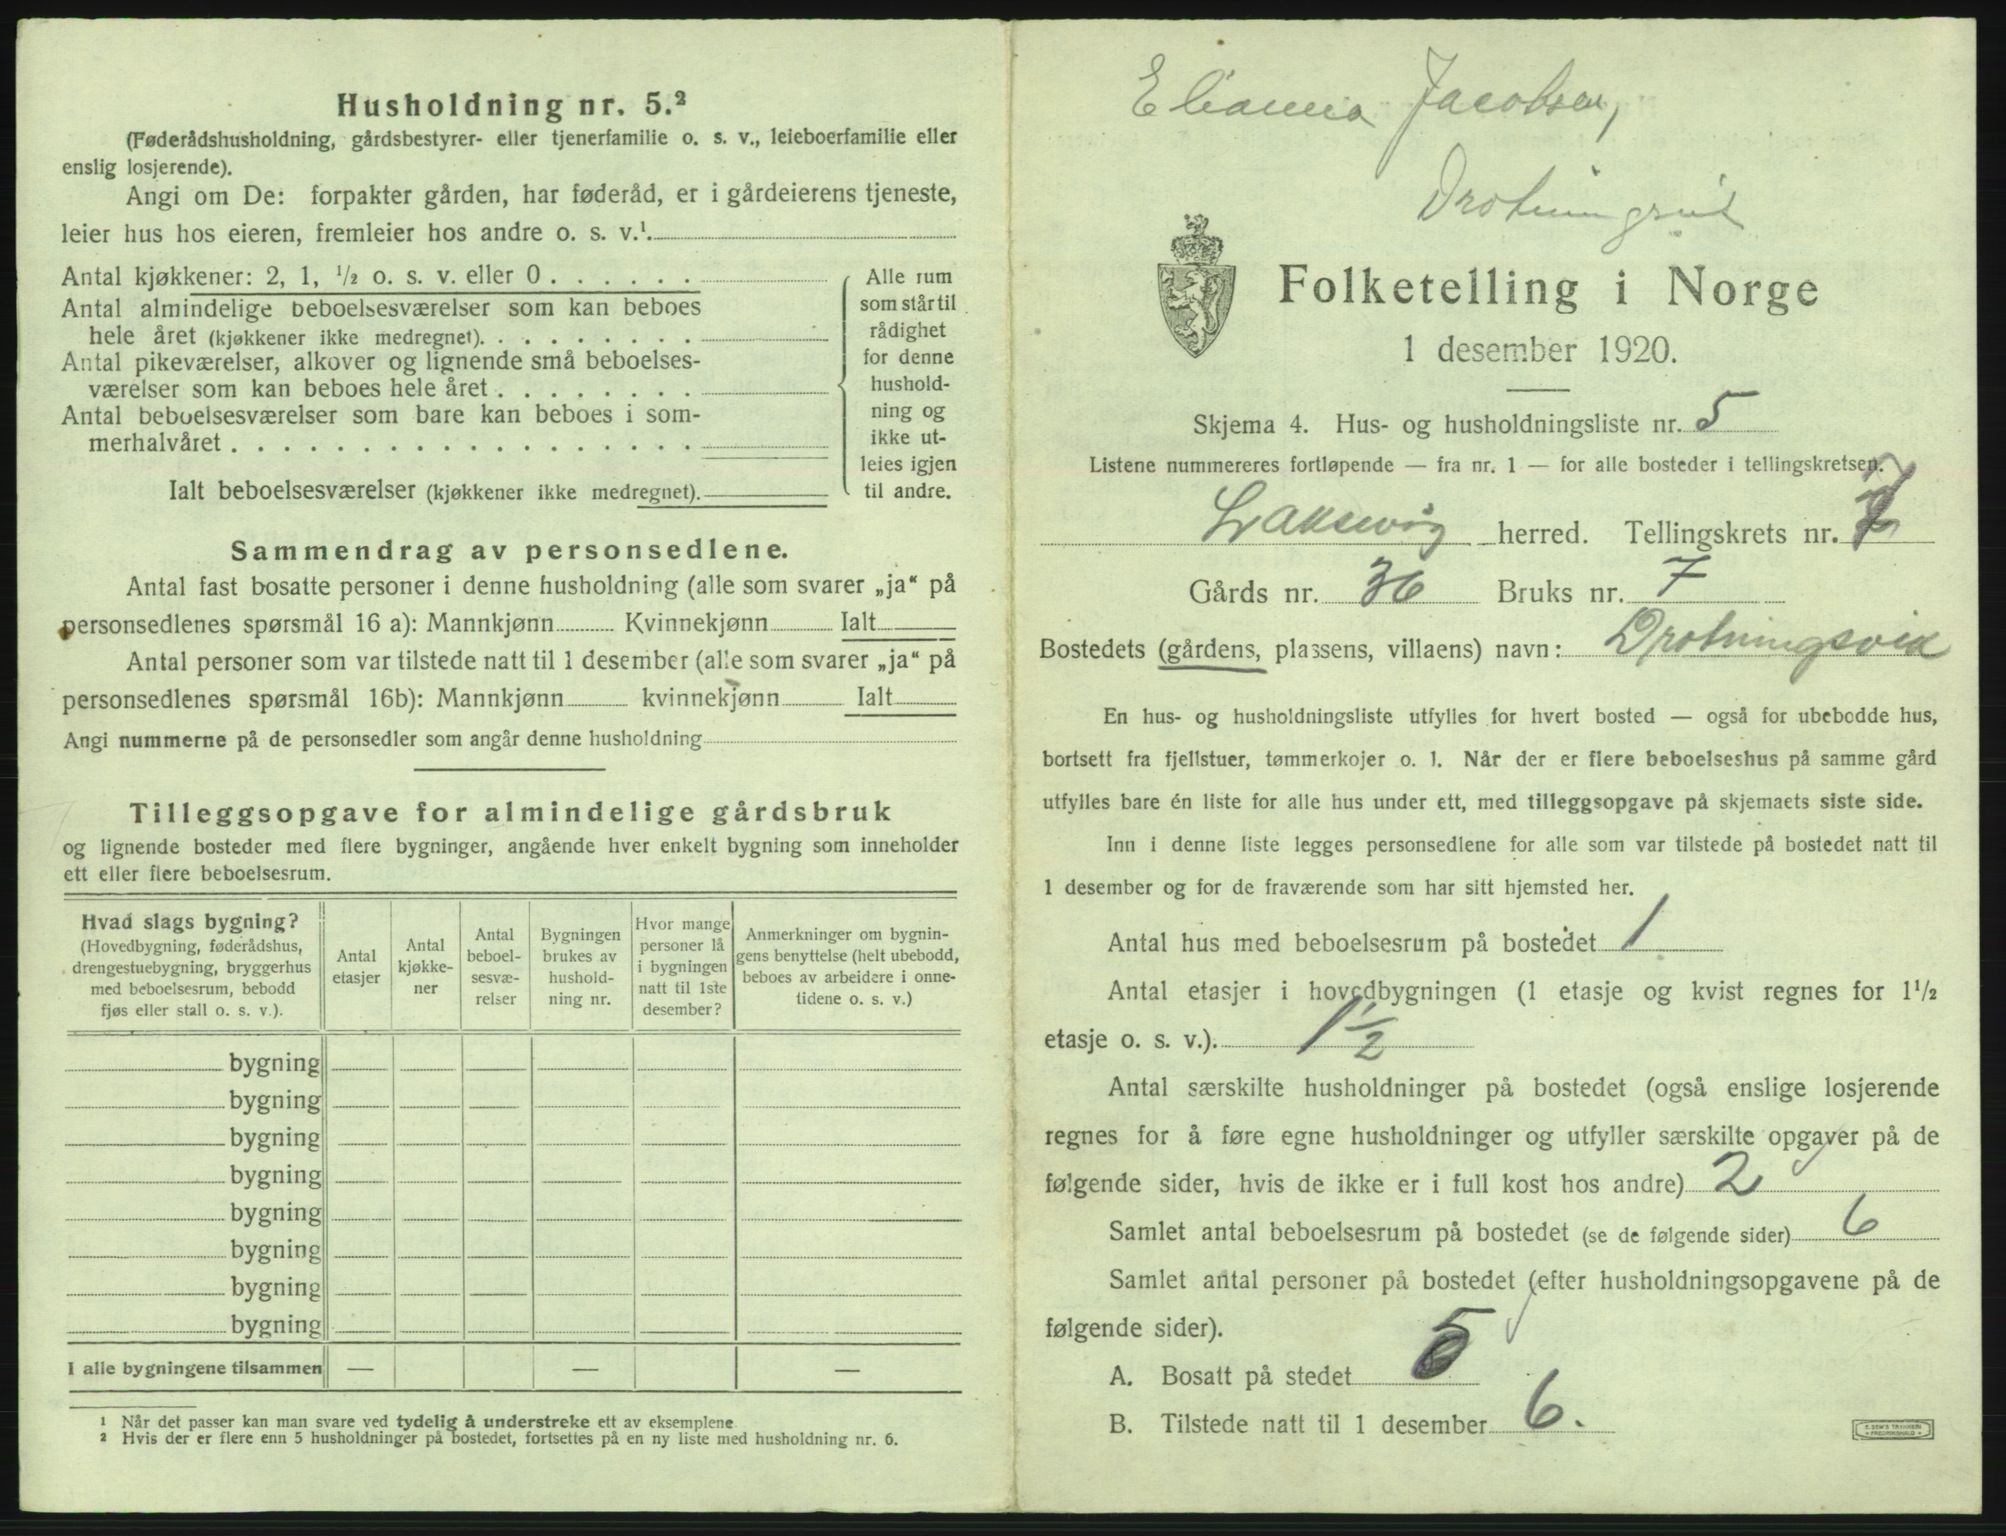 Husholdning nr. 5.²
(Føderådshusholdning, gårdsbestyrer- eller tjenerfamilie o. s. v., leieboerfamilie eller
enslig losjerende).
Angi om De: forpakter gården, har føderåd, er i gårdeierens tjeneste,
leier hus hos eieren, fremleier hos andre o. s. v.¹.
Antal kjøkkener: 2, 1, ¹/₂ o. s. v. eller 0 . . . . . .
Antal almindelige beboelsesværelser som kan beboes
hele året (kjøkkener ikke medregnet). . . . . . . . .
Antal pikeværelser, alkover og lignende små beboelses-
værelser som kan beboes hele året . . . . . . . .
Antal beboelsesværelser som bare kan beboes i som-
merhalvåret . . . . . . . . . . . . . . . . . .
Ialt beboelsesværelser (kjøkkener ikke medregnet).
Alle rum
som står til
rådighet
for denne
hushold-
ning og
ikke ut-
leies igjen
til andre.
Sammendrag av personsedlene.
Antal fast bosatte personer i denne husholdning (alle som svarer „ja“ på
personsedlenes spørsmål 16 a): Mannkjønn Kvinnekjønn Ialt
Antal personer som var tilstede natt til 1 desember (alle som svarer „ja“ på
personsedlenes spørsmål 16b): Mannkjønn kvinnekjønn Ialt
Angi nummerne på de personsedler som angår denne husholdning
Tilleggsopgave for almindelige gårdsbruk
og lignende bosteder med flere bygninger, angående hver enkelt bygning som inneholder
ett eller flere beboelsesrum.
Hvad slags bygning?
(Hovedbygning, føderådshus,
drengestuebygning, bryggerhus
med beboelsesrum, bebodd
fjøs eller stall o. s. v.).
Antal
etasjer
Antal
kjøkke-
ner
Antal
beboel-
sesvæ-
relser
Bygningen
brukes av
hushold-
ning nr.
Hvor mange
personer lå
i bygningen
natt til 1ste
desember?
Anmerkninger om bygnin-
gens benyttelse (helt ubebodd,
beboes av arbeidere i onne-
tidene o. s. v.)
bygning
bygning
bygning
bygning
bygning
bygning
bygning
bygning
I alle bygningene tilsammen — — —
¹ Når det passer kan man svare ved tydelig å understreke ett av eksemplene.
² Hvis der er flere enn 5 husholdninger på bostedet, fortsettes på en ny liste med husholdning nr. 6.
Jacobsen,
Folketelling i Norge
1 desember 1920.
Skjema 4. Hus- og husholdningsliste nr. 5
Listene nummereres fortløpende — fra nr. 1 — for alle bosteder i tellingskretsen.
Laksevåg herred. Tellingskrets nr. 7
Gårds nr. 36 Bruks nr. 7
Bostedets (gårdens, plassens, villaens) navn: Drotningsvik
En hus- og husholdningsliste utfylles for hvert bosted — også for ubebodde hus,
bortsett fra fjellstuer, tømmerkojer o. l. Når der er flere beboelseshus på samme gård
utfylles bare én liste for alle hus under ett, med tilleggsopgave på skjemaets siste side.
Inn i denne liste legges personsedlene for alle som var tilstede på bostedet natt til
1 desember og for de fraværende som har sitt hjemsted her.
Antal hus med beboelsesrum på bostedet 1
Antal etasjer i hovedbygningen (1 etasje og kvist regnes for 1¹/₂
etasje o. s. v.). 1 ½
Antal særskilte husholdninger på bostedet (også enslige losjerende
regnes for å føre egne husholdninger og utfyller særskilte opgaver på de
følgende sider, hvis de ikke er i full kost hos andre) 2
Samlet antal beboelsesrum på bostedet (se de følgende sider) 6
Samlet antal personer på bostedet (efter husholdningsopgavene på de
følgende sider).
A. Bosatt på stedet 5
B. Tilstede natt til 1 desember 6.